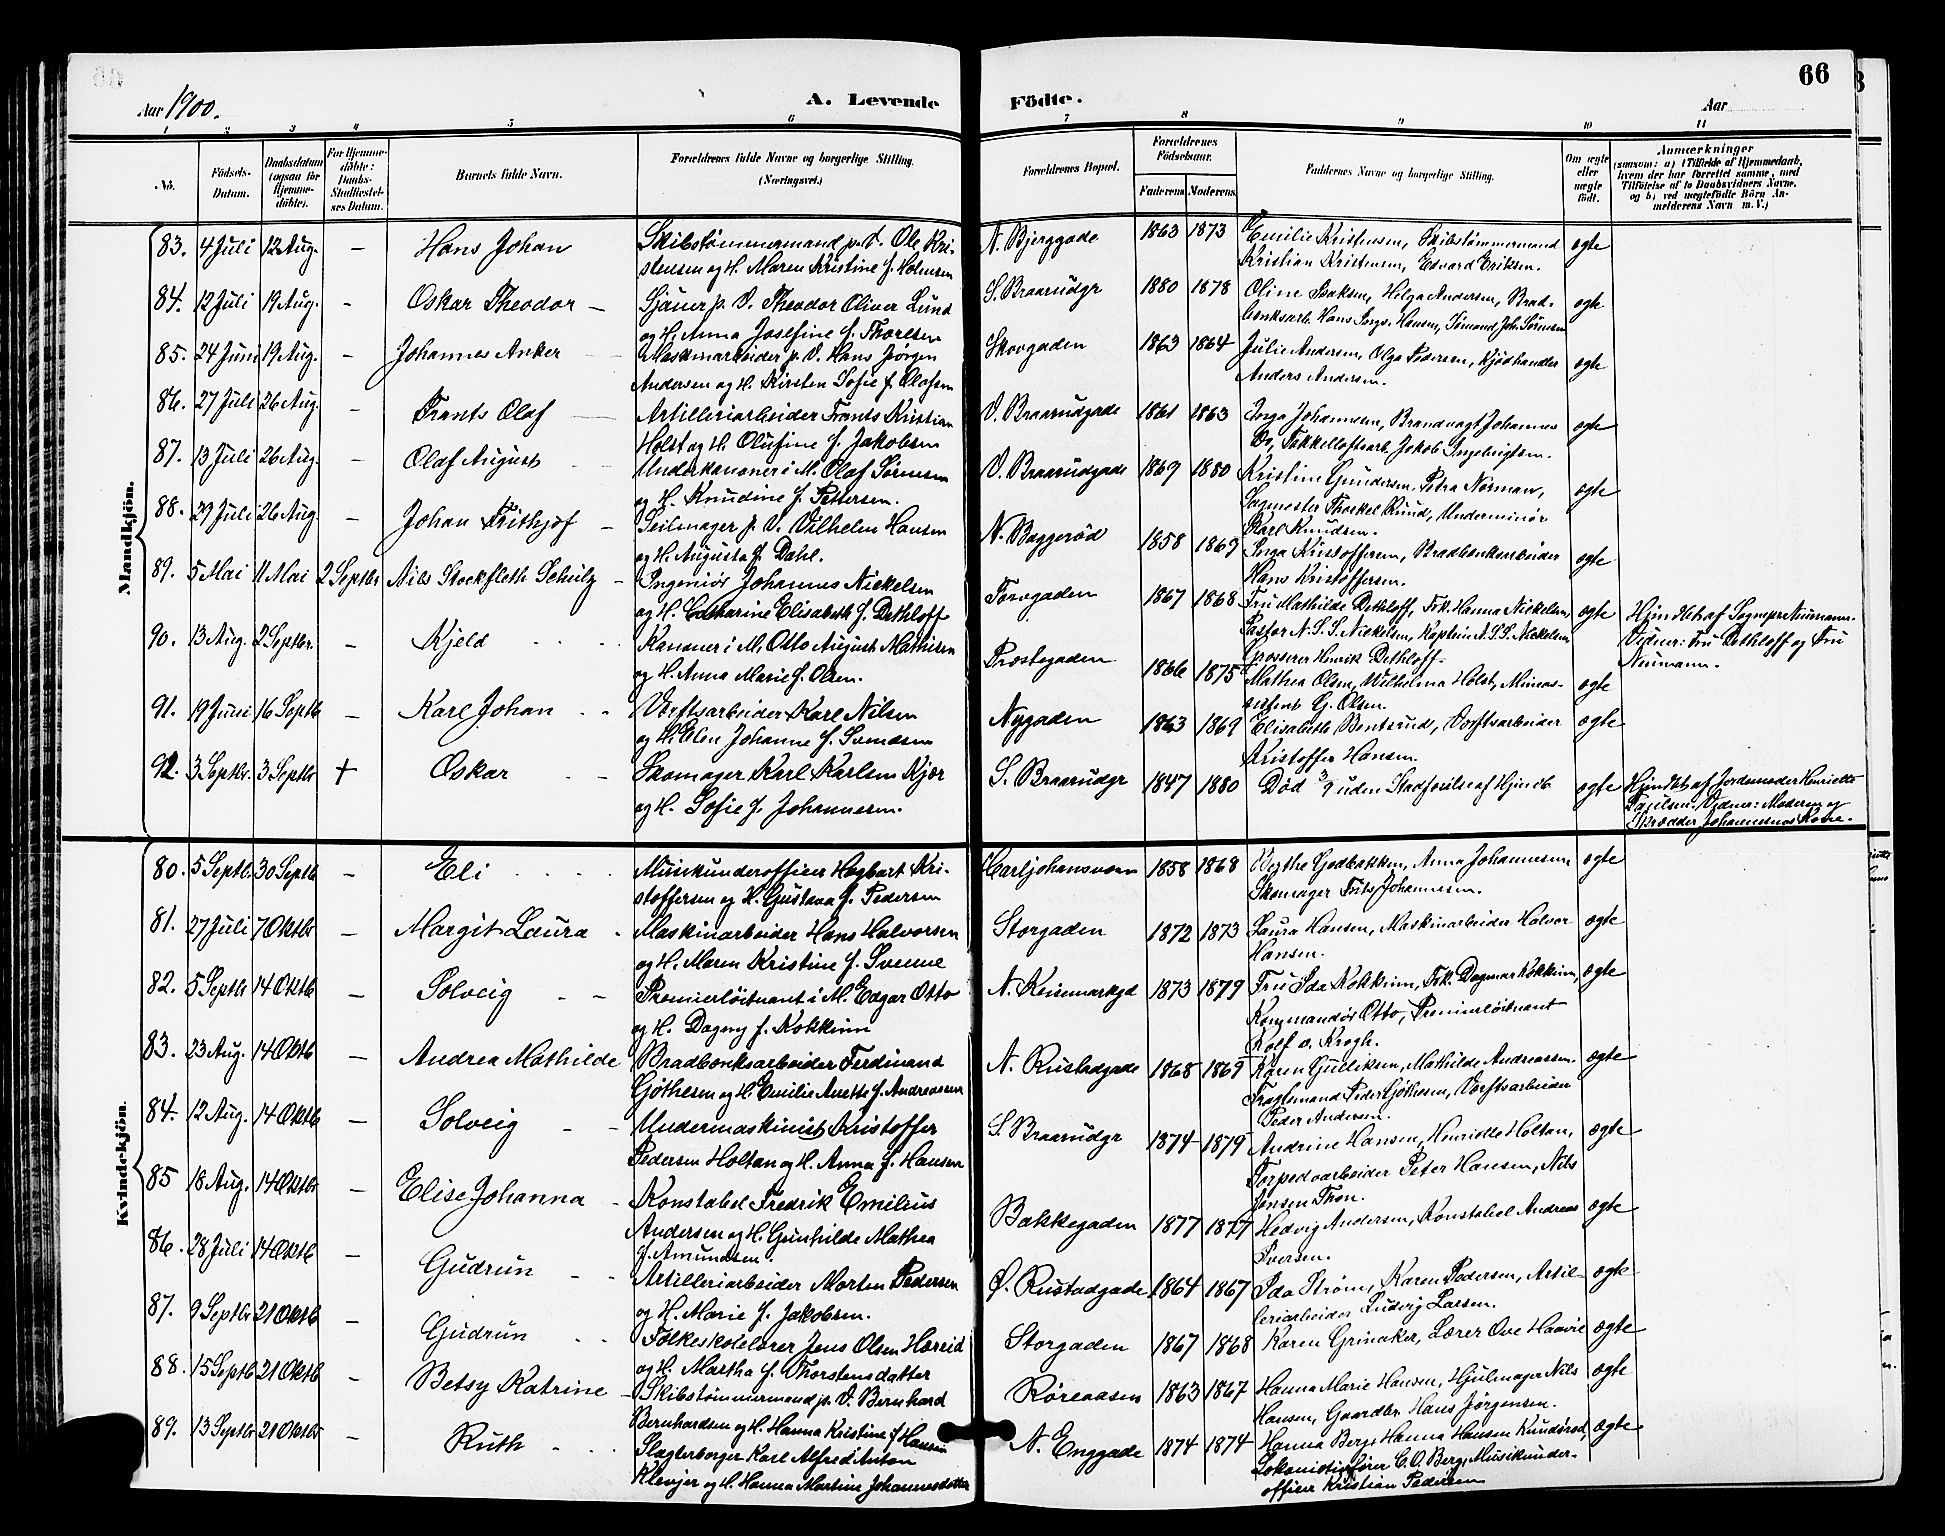 66
Aar 1900. A. Levende Födte. Aar
1 2 3 4 5 6 7 8 9 10 11
No. Födsels-Datum. Daabsdatum (ogsaa for Hjemmedöbte). For Hjemmedöbte: Daabs-Stadfæstelses Datum. Barnets fulde Navn. Forældrenes fulde Navne og borgerlige Stilling. (Næringsvei.) Forældrenes Bopæl. Forældrenes Födselsaar. Faderens Moderens. Faddernes Navne og borgerlige Stilling. Om ægte eller uægte födt. Anmærkninger (saasom: a) i Tilfælde af Hjemmedaab, hvem der har forrettet samme, med Tilföielse af to Daabsvidners Navne, og b) ved uægtefödte Börn Anmelderens Navn m. V.)
Mandkjön.
83. 4 Juli 12 Aug. – Hans Johan Skibstømmermand p. V. Ole Kri- N. Bjerggade 1863 1873 Emilie Kristensen, Skibstømmermand ægte
stensen og H. Maren Kristine f. Holmsen Kristian Kristensen, Edvard Eriksen.
84. 12 Juli 19 Aug. – Oskar Theodor – Sjauer p. V. Theodor Oliver Lund S. Braarudgr 1880 1878 Oline Isaksen, Helga Andersen, Brad- ægte
og H. Anna Josefine f. Thorlsen benksarb. Hans Ings. Hansen, Sømand Joh. Sørensen
85. 24 Juni 19 Aug. – Johannes Anker Maskinarbeider p. V. Hans Jørgen Skovgaden 1863 1864 Julie Andersen, Olga Pedersen, Kjødhandler ægte
Andersen og H. Kirsten Sofie f. Olafsen Anders Andersen.
86. 27 Juli 26 Aug. – Frants Olaf Artilleriarbeider Frants Kristian V. Braarudgade 1861 1863 Inga Johannesen, Brandvagt Johannes ægte
Holst og H. Olufine f. Jakobsen Bø, Takkelloftsarb. Jakob Ingebrigtsen.
87. 13 Juli 26 Aug. – Olaf August Underkanoner i M. Olaf Sørensen V. Braarudgade 1869 1880 Kristine Gundersen, Petra Norman, ægte
og H. Knudine f. Pettersen. Sagmester Thorkel Rund, Underminør
Karl Knudsen.
88. 29 Juli 26 Aug. – Johan Frithjof – Seilmager p. V. Vilhelm Hansen N. Baggerød 1858 1869 Inga Kristoffersen, Bradbenkarbeider ægte
og H. Augusta f. Dahl. Hans Kristoffersen.
89. 5 Mai 11 Mai 2 Septbr Nils Stockfleth Schulz – Ingeniør Johannes Nickelsen Torvgaden 1867 1868 Fru Mathilde Dethloff, Frk. Hanna Nickelsen, ægte Hjemdøbt af Sognepr Neumann.
og H. Catharine Elisabeth f. Dethloff Pastor N. S. S. Nickelsen, Kaptein N. S. S. Nickelsen Vidner: Fru Dethloff og Fru
Grosserer Henrik Dethloff. Neumann.
90. 13 Aug. 2 Septbr. – Kjeld Kanoner i M. Otto August Mathisen Præstegaden 1866 1875 Mathea Olsen, Wilhelma Holst, Mineas- ægte
og H. Anna Marie f. Olsen. sistent G. Olsen.
91. 19 Juni 16 Septb – Karl Johan Verftsarbeider Karl Nilsen Nygaden 1863 1869 Elisabeth Bentsrud, Verftsarbeider ægte
og H. Elen Johanne f. Svendsen Kristoffer Hansen.
92. 3 Septbr. 3 Septbr + Oskar Skomager Karl Karlsen Kjær S. Braarudgr 1847 1880 Død 3/9 uden Stadfæstelse af Hjmdb ægte Hjemdøbt af Jordemoder Henriette
og H. Sofie f. Johannesen. Vidner: Moderen og
Johannesens Kone.
Kvindekjön.
80. 5 Septb. 30 Septb – Eli Musikunderofficer Hagbart Kri- Carljohansværn 1858 1868 Godbakken, Anna Johannesen ægte
stoffersen og H. Gustava f. Pedersen Skomager Frits Johannesen.
81. 27 Juli 7 Oktbr – Margit Laura Maskinarbeider Hans Halvorsen Storgaden 1872 1873 Laura Hansen, Maskinarbeider Halvor ægte
og H. Maren Kristine f. Svenne Hansen.
82. 5 Septbr 14 Oktb – Solveig Premierløitnant i M. Edgar Otto N. Keisemarkgd 1873 1879 Fru Ida Kokkinn, Frk. Dagmar Kokkinn, ægte
og H. Dagny f. Kokkinn Kommandør Otto, Premierløitnant
Rolf v. Krogh.
83. 23 Aug. 14 Oktb – Andrea Mathilde Bradbenksarbeider Ferdinand N. Rustadgade 1868 1869 Karen Gulliksen, Mathilde Andreassen. ægte
Gjøthesen og H. Emilie Anette f. Andreassen Fragtemand Peder Gjøthesen, Verftsarbeider
Peder Andersen.
84. 12 Aug. 14 Oktb – Solveig Undermaskinist Kristoffer S. Braarudgr 1874 1879 Andrine Hansen, Henriette Holtan, ægte
Pedersen Holtan og H. Anna f. Hansen Torpedoarbeider Peter Hansen, Nils
Jensen Thon.
85 18 Aug. 14 Oktbr – Elise Johanna – Konstabel Fredrik Emilius Bakkegaden 1877 1877 Hedvig Andersen, Konstabel Andreas ægte
Andersen og H. Gunhilde Mathea Iversen.
f. Amundsen.
86. 28 Juli 14 Oktb – Gudrun Artilleriarbeider Morten Pedersen Ø. Rustadgade 1864 1867 Ida Strøm, Karen Pedersen, Artil- ægte
og H. Marie f. Jakobsen. leriarbeider Ludvig Larsen.
87. 9 Septbr 21 Oktb – Gudrun Folkeskolelærer Jens Olsen Høreid Storgaden 1867 1868 Karen Grinaker, Lærer Ove Haavie ægte
og H. Martha f. Thorstensdatter
88. 15 Septb 21 Oktb – Betsy Katrine – Skibstømmermand p. V. Bernhard Røreaasen 1863 1867 Hanna Marie Hansen, Hjulmager Nils ægte
Bernhardsen og H. Hanna Kristine f. Hansen Hansen, Gaardbr. Hans Jørgensen.
89. 13 Septbr 21 Oktbr – Ruth Slagterborger Karl Alfred Anton N. Enggade 1874 1874 Hanna Berg, Hanna Hansen Kundsrød, ægte
Klevjer og H. Hanna Martine Johannesdatter Lokomotivfører C. O. Berg, Musikunder-
officer Kristian Pedersen